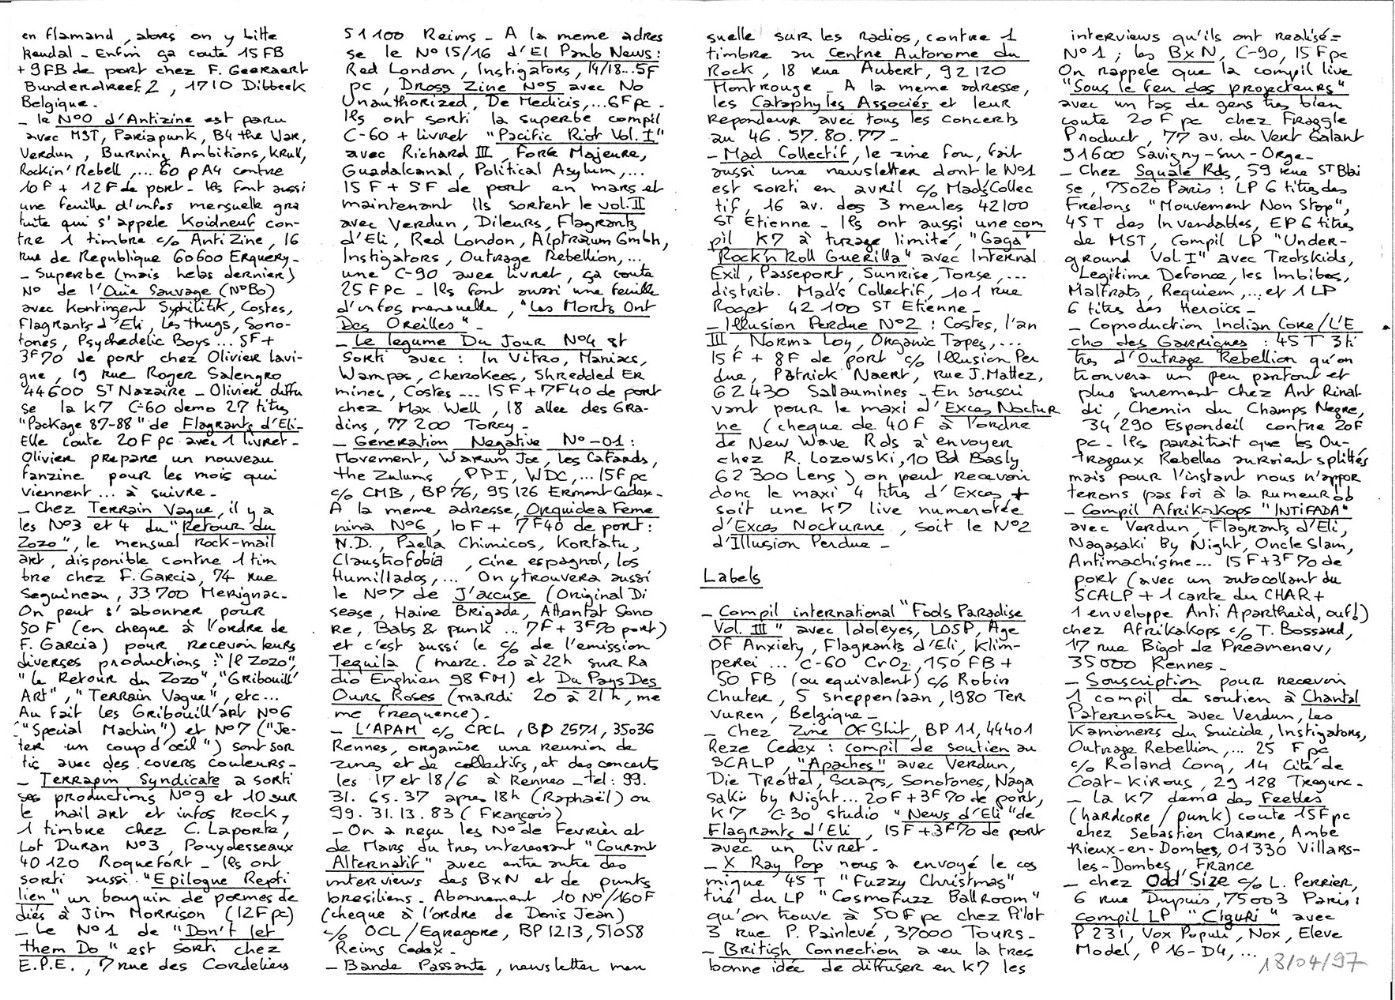 en flamand, alors on y bitte
keudal - Enfin ça coute 15 FB
+ 9FB de port chez F. Geeraert
Bunderdreef 2, 1710 Dilbeek
Belgique.
- Le N°0 d'Antizine est paru
avec MST, Pariapunk, B4 the War,
Verdun, Burning Ambitions, Krull,
Rockin' Rebell,... 60 p A4 contre
10F + 12F de port - Ils font aussi
une feuille d'infos mensuelle gra
tuite qui s'appele Koidneuf con-
tre 1 timbre c/o AntiZine, 16
rue de Republique 60600 Erquery -
- Superbe (mais helas dernier)
N° de l'Ouie Sauvage (N°Bo)
avec Kontingent Syphilitik, Costes,
Flagrants d'Eli, les Thugs, Sono-
tones, Psychedelic Boys... 5F +
3F70 de port chez Olivier Lavi-
gne, 19 rue Roger Salengro
44600 St Nazaire - Olivier diffu
se la K7 C-60 demo 27 titres
"Package 87-88" de Flagrants d'Eli-
Elle coute 20F pc avec 1 livret -
Olivier prepare un nouveau
fanzine pour les mois qui
viennent... à suivre -
- Chez Terrain Vague, il y a
les N°3 et 4 du "Retour du
Zozo", le mensuel Rock-mail
art, disponible contre 1 tim
bre chez F. Garcia, 74 rue
Seguineau, 33700 Merignac -
On peut s'abonner pour
50F (en cheque à l'ordre de
F. Garcia) pour recevoir leurs
diverses productions: "Il Zozo",
"Le Retour du Zozo", "Gribouill'
Art", "Terrain Vague", etc...
Au fait les Gribouill'art N°6
"Special Machin") et N°7 ("Je-
ter un coup d'oeil") sont sor
tis avec des covers couleurs -
- Terrapin Syndicate a sorti
ses productions N°9 et 10 sur
le mail art et infos Rock,
1 timbre chez C. Laporte,
Lot Duran N°3, Pouydesseaux
40120 Roquefort - Ils ont
sorti aussi "Epilogue Repti
lien" un bouquin de poèmes de
diés à Jim Morrison (12F pc)
- Le N°1 de "Don't let
them Do" est sorti chez
E.P.E., 7 rue des Cordeliers
51100 Reims - A la meme adres
se le N°15/16 d'El Panb News:
Red London, Instigators, 14/18...5F
pc, Dross Zine N°5 avec No
Unauthorized, De Medicis,...6F pc -
Ils ont sorti la superbe compil
C-60 + livret "Pacific Riot Vol.I"
avec Richard III, Force Majeure,
Guadalcanal, Political Asylum,...
15F + 5F de port en mars et
maintenant ils sortent le Vol.II
avec Verdun, Dileurs, Flagrants
d'Eli, Red London, Alptraum Gmbh,
Instigators, Outrage Rebellion,...
une C-90 avec livret, ça coute
25F PC - Ils font aussi une feuille
d'infos mensuelle, "Les Morts Ont
Des Oreilles" -
- Le legume Du Jour N°4 est
sorti avec: In Vitro, Maniacs,
Wampas, Cherokees, Shredded Er
mines, Costes... 15F + 7F40 de port
chez Max Well, 18 allee des Gra-
dins, 77200 Torcy -
- Generation Negative N°-01:
Movement, Warum Joe, les Cafards,
the Zuluns, PPI, WDC,... 15F pc
c/o CMB, BP76, 95126 Ermont Cedex -
A la meme adresse, Orquidea Feme
nina N°6, 10F + 7F40 de port:
N.D., Paela Chimicos, Kortatu,
Claustrofobia, cine espagnol, los
Humillados,... On y trouvera aussi
le N°7 de J'accuse (Original Di
sease, Haine Brigade, Attentat Sono
re, Babs & punk... 7F + 3F70 port)
et c'est aussi le c/o de l'emission
Tequila (merc. 20 à 22h sur Ra
dio Enghien 98 FM) et Du Pays Des
Ours Roses (mardi 20 à 21h, me
me frequence) -
- L'APAM c/o CPCL, BP 2571, 35036
Rennes, organise une reunion de
zines et de collectifs, et des concerts
les 17 et 18/6 à Rennes - tel: 99.
31. 65. 37 apres 18h (Raphaël) ou
99. 31. 13. 83 (François)
- On a reçu les N° de Fevrier et
de Mars du tres interessant "Courant
Alternatif" avec entre autre des
interviews des BxN et de punks
bresiliens - Abonnement 10 N°/160F
(cheque à l'ordre de Denis Jean)
c/o OCL/Egregore, BP 1213, 51058
Reims Cedex -
- Bande Passante, newsletter men
suelle sur les radios, contre 1
timbre au Centre Autonome du
Rock, 18 rue Aubert, 92120
Montrouge - A la meme adresse,
les Cataphyles Associés et leur
Repondeur avec tous les concerts
au 46. 57. 80. 77 -
- Mad Collectif, le zine fou, fait
aussi une newsletter dont le N°1
est sorti en avril c/o Mad's Collec
tif, 16 av. des 3 meules 42100
ST Etienne - Ils ont aussi une com
pil K7 à tirage limité, "Gaga
Rock'n Roll Guerilla" avec Internal
Exil, Passeport, Sunrise, Torse,...
distrib. Mad's Collectif, 101 rue
Roget 42100 ST Etienne -
- Illusion Perdue N°2: Costes, l'an
III, Norma Loy, Organic Tapes,...
15F + 8F de port c/o Illusion Per
due, Patrick Naert, rue J. Mattez,
62430 Sallaumines - En souscri
vant pour le maxi d'Exces Noctur
ne (cheque de 40F à l'ordre
de New Wave Rds à envoyer
chez R. Lozowski, 10 Bd Basly
62300 Lens) on peut recevoir
donc le maxi 4 titres d'Exces, +
soit une K7 live numerotée
d'Exces Nocturne, soit le N°2
d'Illusion Perdue -
Labels
- Compil international "Fools Paradise
Vol. III" avec Idoleyes, LDSP, Age
Of Anxiety, Flagrants d'Eli, Klim-
perei... C-60 CrO2, 150 FB +
50 FB (ou equivalent) c/o Robin
Chuter, 5 sneppenlaan, 1980 Ter
vuren, Belgique -
- Chez Zine Of Shit, BP 11, 44401
Reze Cedex: compil de soutien au
SCALP, "Apaches" avec Verdun,
Die Trottel, Scraps, Sonotones, Naga
saki by Night... 20F + 3F70 de port,
K7 C-30 studio "News d'Eli" de
Flagrants d'Eli, 15F + 3F70 de port
avec un livret -
- X Ray Pop nous a envoyé le cos
mique 45T "Fuzzy Christmas"
tiré du LP "Cosmofuzz Ballroom"
qu'on trouve à 50F pc chez Pilot
3 rue P. Painlevé, 37000 Tours -
- British Connection a eu la tres
bonne idée de diffuser en K7 les
interviews qu'ils ont realisé -
N°1; les BxN, C-90, 15F pc
On rappele que la compil live
"Sous le feu des projecteurs"
avec un tas de gens tres bien
coute 20F pc chez Fraggle
Product, 77 av. du Vert Galant
91600 Savigny-sur-Orge -
- Chez Squale Rds, 59 rue ST Blai
se, 75020 Paris: LP 6 titres des
Frelons "Mouvement Non Stop",
45T des Invendables, EP 6 titres
de MST, Compil LP "Under-
ground Vol I" avec Trotskids,
Legitime Defonce, les Imbibés,
Malfrats, Requiem,... et 1 LP
6 titres des Heroïcs -
- Coproduction Indian Core/L'E
cho des Garrigues: 45T 3 ti
tres d'Outrage Rebellion qu'on
trouvera un peu partout et
plus surement chez Ant Rinal
di, Chemin du Champs Negre,
34290 Espondeil contre 20F
pc - Ils paraitrait que les Ou-
trageux Rebelles auraient splittés
mais pour l'instant nous n'appor
terons pas foi à la rumeur
- Compil Afrikakops "INTIFADA"
avec Verdun, Flagrants d'Eli,
Nagasaki By Night, Oncle Slam,
Antimachisme... 15F + 3F70 de
port (avec un autocollant du
SCALP + 1 carte du CHAR +
1 enveloppe Anti Apartheid, ouf!)
chez Afrikakops c/o T. Bossard,
17 rue Bigot de Preameneu,
35000 Rennes -
- Souscription pour recevoir
1 compil de soutien à Chantal
Paternostre avec Verdun, Les
Kamioners du Suicide, Instigators,
Outrage Rebellion,... 25 F pc
c/o Roland Cong, 14 Cité de
Coat-Kirous, 29128 Tregunc -
- La K7 demo des Feebles
(hardcore / punk) coute 15F pc
chez Sebastien Charme, Ambe
rieux-en-Dombes, 01330 Villars-
les-Dombes, France
- chez Odd Size c/o L. Perrier,
6 rue Dupuis, 75003 Paris:
compil LP "Ciguri" avec
P 231, Vox Populi, Nox, Eleve
Model, P16-D4,...
18/04/97